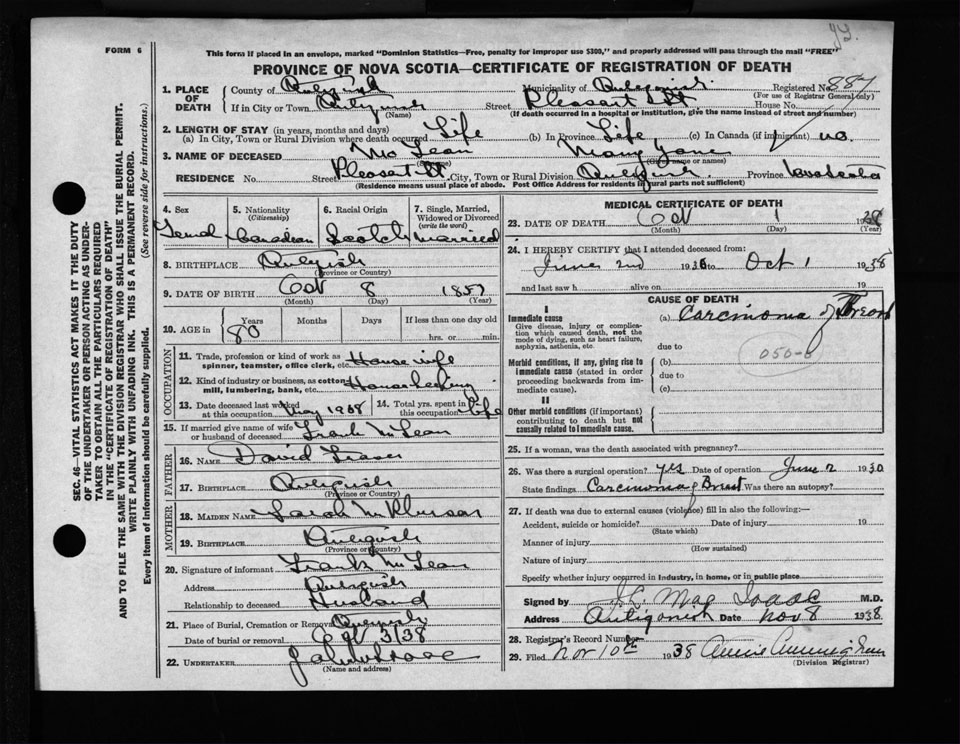 FORM 6
This form if placed in an envelope, marked "Dominion Statistics—Free, penalty for improper use $300," and properly addressed will pass through the mail "FREE"
PROVINCE OF NOVA SCOTIA—CERTIFICATE OF REGISTRATION OF DEATH
SEC. 46—VITAL STATISTICS ACT MAKES IT THE DUTY
OF THE UNDERTAKER OR PERSON ACTING AS UNDER-
TAKER TO OBTAIN ALL THE PARTICULARS REQUIRED
IN THE "CERTIFICATE OF REGISTRATION OF DEATH"
AND TO FILE THE SAME WITH THE DIVISION REGISTRAR WHO SHALL ISSUE THE BURIAL PERMIT.
WRITE PLAINLY WITH UNFADING INK. THIS IS A PERMANENT RECORD.
Every item of Information should be carefully supplied. (See reverse side for instructions.)
1. PLACE OF DEATH County of Municipality of Registered No. 887
(For use of Registrar General only)
If in City or Town Street Pleasant St House No.
(Name) (If death occurred in a hospital or institution, give the name instead of street and number)
2. LENGTH OF STAY (in years, months and days)
(a) In City, Town or Rural Division where death occurred Life (b) In Province Life (c) In Canada (if immigrant) no.
3. NAME OF DECEASED Mc Lean Mary Jane
RESIDENCE No. Street Pleasat St City, Town or Rural Division Province
(Residence means usual place of abode. Post Office Address for residents in rural parts not sufficient)
4. Sex
5. Nationality (Citizenship) Canadian
6. Racial Origin Scotch
7. Single, Married, Widowed or Divorced (write the word) Married
8. BIRTHPLACE
(Province or Country)
9. DATE OF BIRTH Oct 8 1857
(Month) (Day) (Year)
10. AGE in Years Months Days If less than one day old
80 hrs. or min.
OCCUPATION
11. Trade, profession or kind of work as spinner, teamster, office clerk, etc. House wife
12. Kind of industry or business, as cotton mill, lumbering, bank, etc. Housekeeping
13. Date deceased last worked at this occupation May 1938
14. Total yrs. spent in this occupation life
15. If married give name of wife or husband of deceased Frank McLean
FATHER
16. NAME David Fraser
17. BIRTHPLACE
(Province or Country)
MOTHER
18. MAIDEN NAME Sarah McPherson
19. BIRTHPLACE
(Province or Country)
20. Signature of informant Frank McLean
Address
Relationship to deceased Husband
21. Place of Burial, Cremation or Removal
Date of burial or removal Oct 3/38
22. UNDERTAKER
(Name and address)
MEDICAL CERTIFICATE OF DEATH
23. DATE OF DEATH Oct 1 1938
(Month) (Day) (Year)
24. I HEREBY CERTIFY that I attended deceased from:
June 2nd 193 to Oct 1 1938
and last saw h alive on 19
CAUSE OF DEATH
I
Immediate cause (a) Carcinoma of Breast
Give disease, injury or complication which caused death, not the mode of dying, such as heart failure, asphyxia, asthenia, etc.
due to
Morbid conditions, if any, giving rise to immediate cause (stated in order proceeding backwards from immediate cause). (b)
due to
(c)
II
Other morbid conditions (if important) contributing to death but not causally related to immediate cause.
25. If a woman, was the death associated with pregnancy?
26. Was there a surgical operation? yes Date of operation June 2 1930
State findings Carcinoma of Breast Was there an autopsy?
27. If death was due to external causes (violence) fill in also the following:—
Accident, suicide or homicide? Date of injury 19
(State which)
Manner of injury
(How sustained)
Nature of injury
Specify whether injury occurred in industry, in home, or in public place
Signed by Mac Isaac M.D.
Address Antigonish Date Nov 8 1938
28. Registrar's Record Number
29. Filed Nov 10th 1938 Annie Cunningham
(Division Registrar)